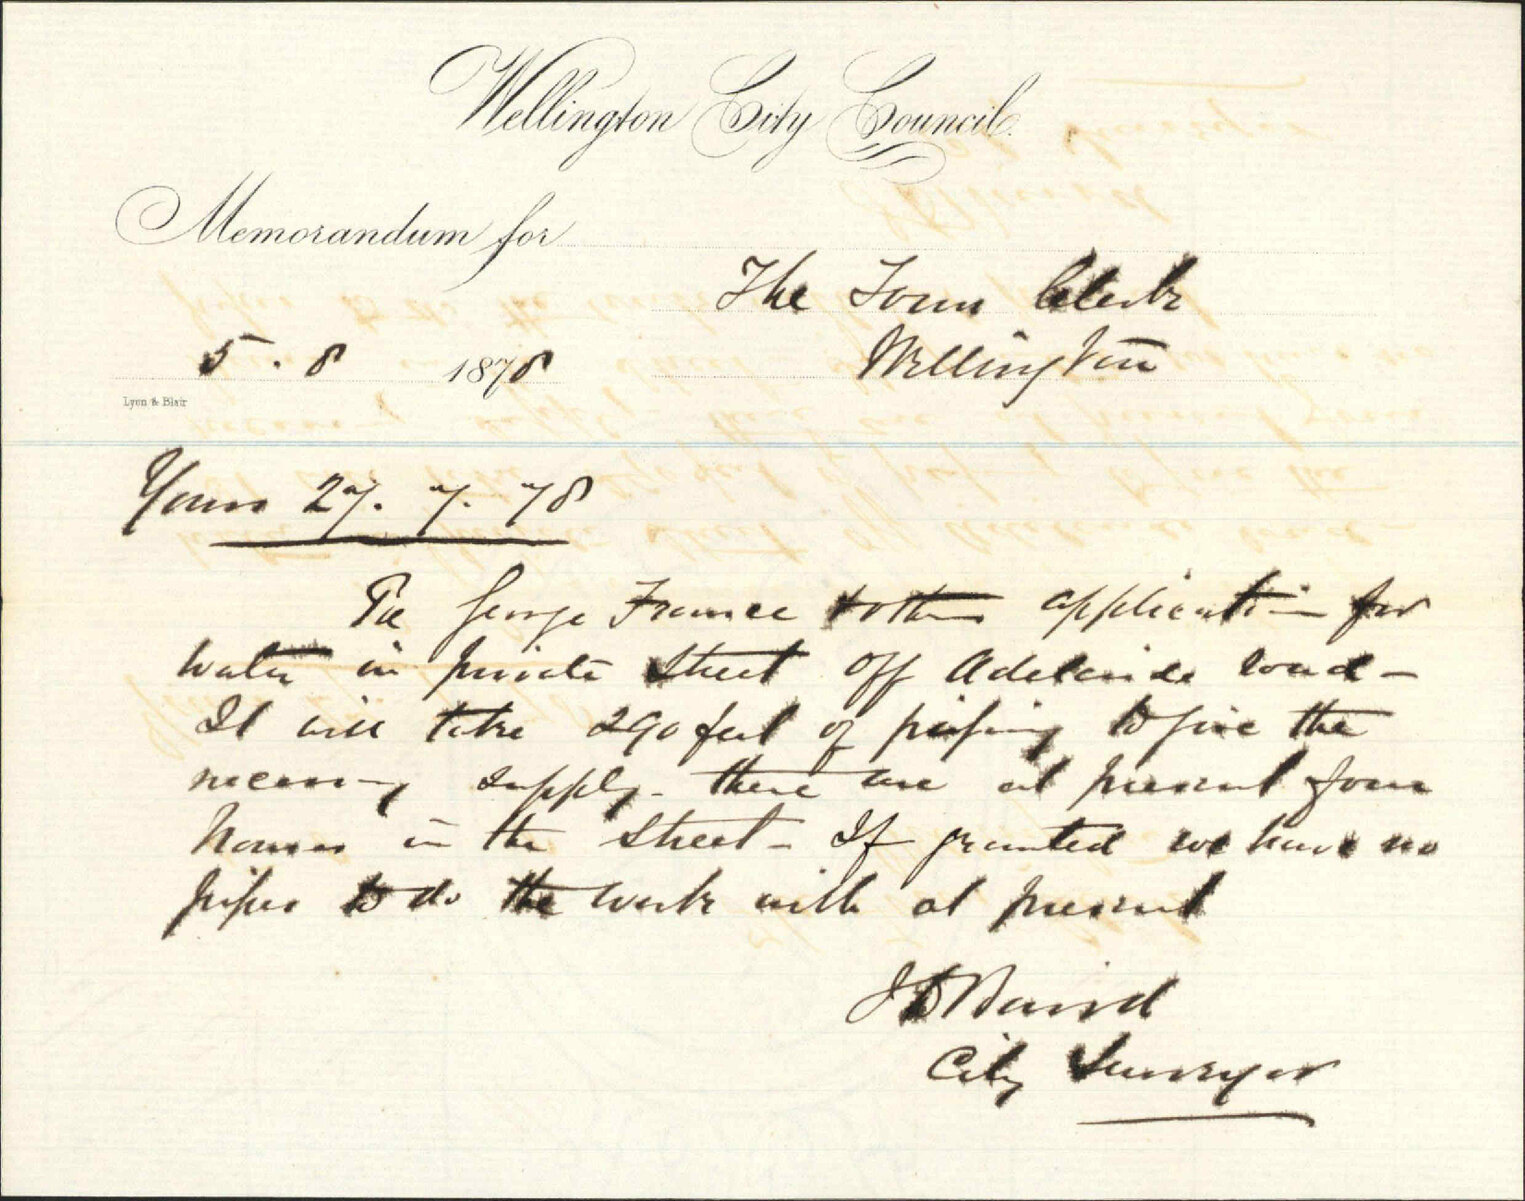 Wellington City Council.
Memorandum for
The Town Clerk
5 . 8 1878
Wellington
Lyon & Blair
Yours 27. 7. 78
Re George France & others application for
water in private street off Adelaide road –
It will take 290 feet of piping to give the
necessary supply – there are at present four
houses in the street – If granted we have no
pipes to do the work with at present
J D Baird
City Surveyor